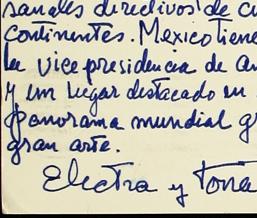 sanales directivos de cu
continentes. Mexico tiene
la vice presidencia de am
y un lugar destacado en
panorama mundial g
gran arte.
Electra y Tona